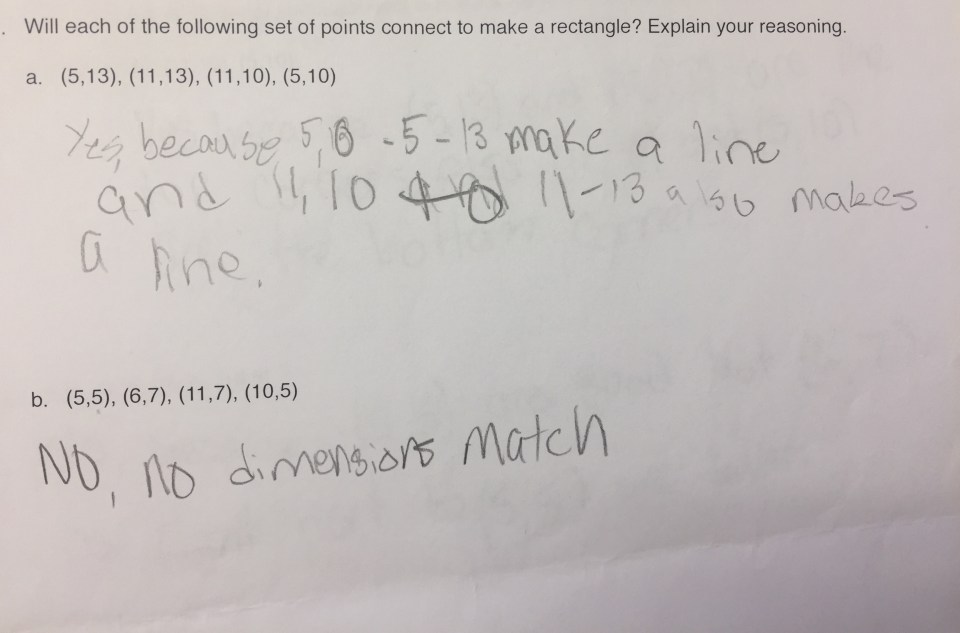 . Will each of the following set of points connect to make a rectangle? Explain your reasoning.
a. (5,13), (11,13), (11,10), (5,10)
Yes, because 5, -5-13 make a line
and 11,10 11-13 also makes
a line.
b. (5,5), (6,7), (11,7), (10,5)
NO, no dimensions match